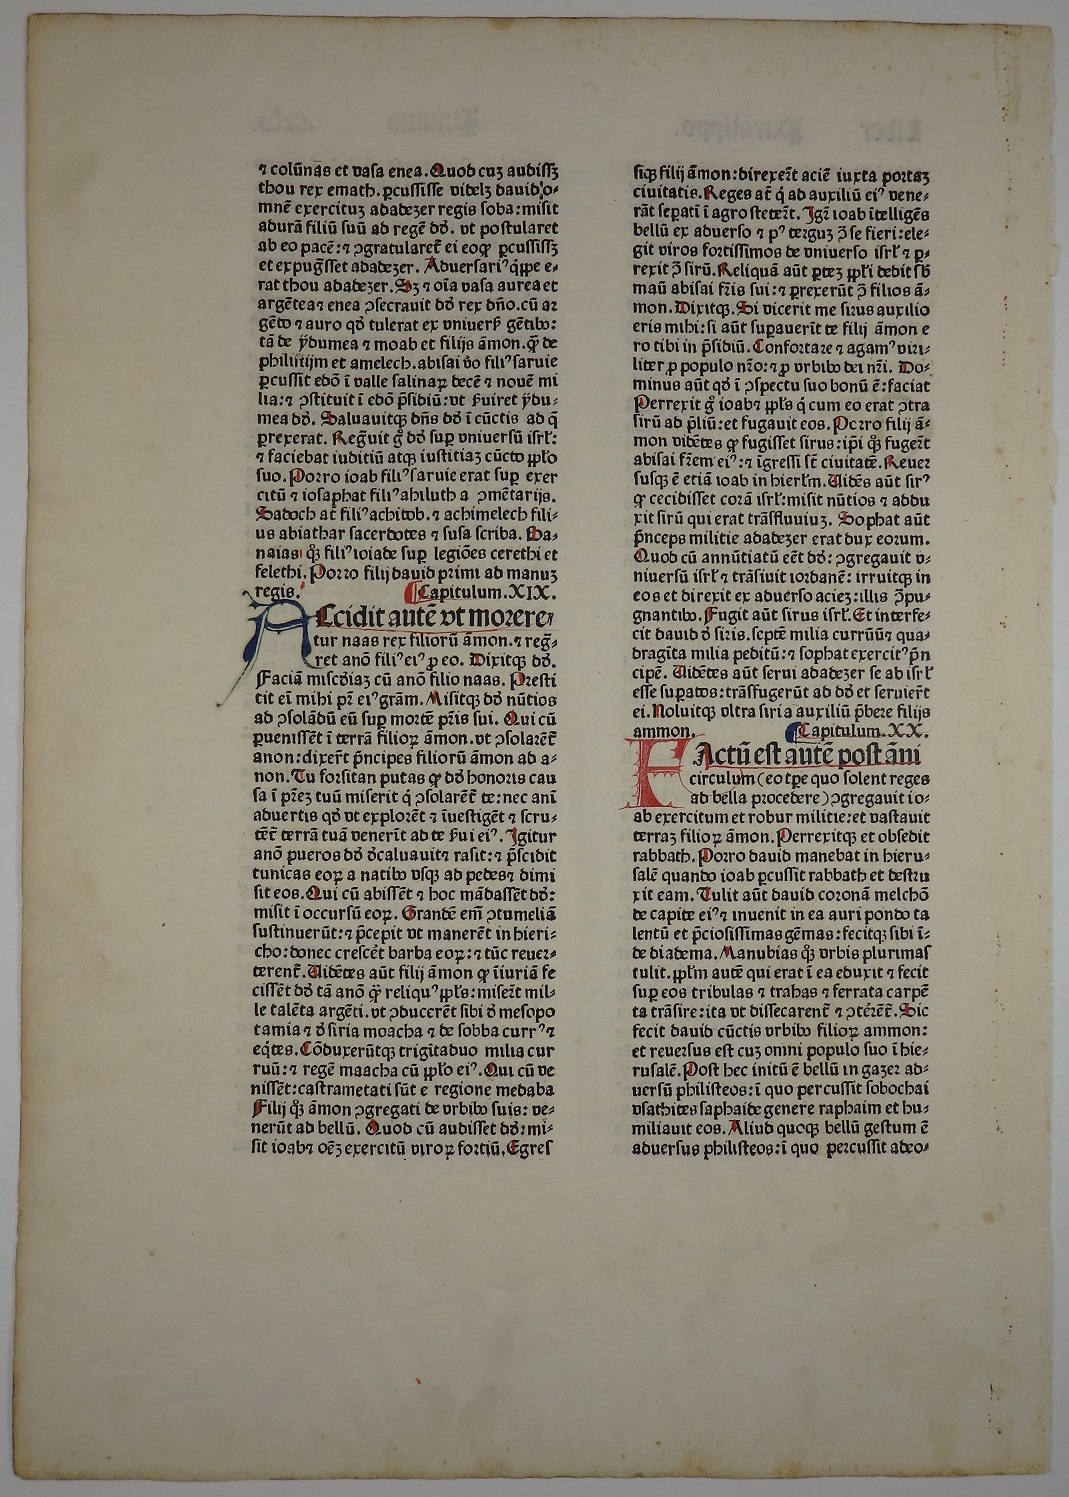 ⁊ colūnas et vasa enea. Quod cuꝫ audissꝫ
thou rex emath. ꝑcussisse videlꝫ dauid o-
mnē exercituꝫ adadeꝫer regis soba: misit
adurā filiū suū ad regē dd̄. vt postularet
ab eo pacē: ⁊ ꝯgratularet̄ ei eoqͥ ꝑcussissꝫ
et expug̃sset adadeꝫer. Aduersariꝰ q̇ppe e-
rat thou adadeꝫer. Sꝫ ⁊ oīa vasa aurea et
argētea ⁊ enea ꝯsecrauit dd̄ rex dn̄o. cū ar
gēto ⁊ auro qd̄ tulerat ex vniuerſ gētibꝰ:
tā de ydumea ⁊ moab et filijs āmon. qͣ de
philistijm et amelech. abisai v̄o filiꝰ saruie
ꝑcussit edō ī valle salinaꝝ decē ⁊ nouē mi
lia: ⁊ ꝯstituit ī edō p̄sidiū: vt ſuiret ydu-
mea dd̄. Saluauitqꝫ dn̄s dd̄ ī cūctis ad q̄
ꝑrexerat. Reg̃uit g̊ dd̄ suꝑ vniuersū isrl̄:
⁊ faciebat iuditiū atqꝫ iustitiaꝫ cūcto pplo
suo. Porro ioab filiꝰ saruie erat suꝑ exer
citū ⁊ iosaphat filiꝰ ahiluth a ꝯmētarijs.
Sadoch at̄ filiꝰ achitob. ⁊ achimelech fili-
us abiathar sacerdotes ⁊ susa scriba. Ba-
naias qͦꝫ filiꝰ ioiade suꝑ legiōes cerethi et
felethi. Porro filij dauid primi ad manuꝫ
regis. Capitulum. XIX.
Accidit autē vt morere-
tur naas rex filiorū āmon. ⁊ reg̃-
ret anō filiꝰ eiꝰ ꝓ eo. Dixitqꝫ dd̄.
Faciā miscd̄iaꝫ cū anō filio naas. Presti
tit eī mihi pr̄ eiꝰ grām. Misitqꝫ dd̄ nūtios
ad ꝯsolādū eū suꝑ mortē pr̄is sui. Qui cū
ꝑuenissēt ī terrā filioꝝ āmon. vt ꝯsolarēt̄
anon: dixer̄t pⁱncipes filiorū āmon ad a-
non. Tu forsitan putas qͥ dd̄ honoris cau
sa ī pr̄eꝫ tuū miserit q̇ ꝯsolarēt̄ te: nec anī
aduertis qd̄ vt explorēt ⁊ īuestigēt ⁊ scru-
tēt̄ terrā tuā venerīt ad te ſui eiꝰ. Igitur
anō pueros dd̄ d̄caluauit ⁊ rasit: ⁊ p̄scidit
tunicas eoꝝ a natibꝰ vsqꝫ ad pedes ⁊ dimi
sit eos. Qui cū abissēt ⁊ hoc mādassēt dd̄:
misit ī occursū eoꝝ. Grandē em̄ ꝯtumeliā
sustinuerūt: ⁊ p̄cepit vt manerēt in hieri-
cho: donec crescēt barba eoꝝ: ⁊ tūc reuer-
terent̄. Uidētes aūt filij āmon qͥ īiuriā fe
cissēt dd̄ tā anō qͣ reliquꝰ ppl̄s: miser̄t mil-
le talēta argēti. vt ꝯducerēt sibi d̄ mesopo
tamia ⁊ d̄ siria moacha ⁊ de sobba currꝰ ⁊
eq̇tes. Cōduxerūtqꝫ trigītaduo milia cur
ruū: ⁊ regē maacha cū pplo eiꝰ. Qui cū ve
nissēt: castrametati sūt e regione medaba
Filij qͦꝫ āmon ꝯgregati de vrbibꝰ suis: ve-
nerūt ad bellū. Quod cū audisset dd̄: mi-
sit ioab ⁊ oēꝫ exercitū viroꝝ fortiū. Egres
siqꝫ filij āmon: direxer̄t aciē iuxta portaꝫ
ciuitatis. Reges at̄ q̇ ad auxiliū eiꝰ vene-
rāt seꝑati ī agro steter̄t. Igr̄ ioab ītelligēs
bellū ex aduerso ⁊ pꝰ terguꝫ ꝯ̄ se fieri: ele-
git viros fortissimos de vniuerso isrl̄ ⁊ ꝑ-
rexit ꝯ̄ sirū. Reliquā aūt ꝑteꝫ ppl̄i dedit sb̄
maū abisai fr̄is sui: ⁊ ꝑrexerūt ꝯ̄ filios ā-
mon. Dixitqꝫ. Si vicerit me sirus auxilio
eris mihi: si aūt suꝑauerīt te filij āmon e
ro tibi in p̄sidiū. Confortare ⁊ agamꝰ viri-
liter ꝓ populo nr̄o: ⁊ ꝓ vrbibꝰ dei nr̄i. Do-
minus aūt qd̄ ī ꝯspectu suo bonū ē: faciat
Perrexit g̊ ioab ⁊ ppl̄s q̇ cum eo erat ꝯtra
sirū ad p̄liū: et fugauit eos. Porro filij ā-
mon vidētes qͥ fugisset sirus: ip̄i qͦꝫ fuger̄t
abisai fr̄em eiꝰ: ⁊ īgressi st̄ ciuitatē. Reuer
susqꝫ ē etiā ioab in hierl̄m. Uidēs aūt sirꝰ
qͥ cecidisset corā isrl̄: misit nūtios ⁊ addu
xit sirū qui erat trāsfluuiuꝫ. Sophat aūt
pⁱnceps militie adadeꝫer erat dux eorum.
Quod cū annūtiatū eēt dd̄: ꝯgregauit v-
niuersū isrl̄ ⁊ trāsiuit iordanē: irruitqꝫ in
eos et direxit ex aduerso acieꝫ: illis ꝯ̄pu-
gnantibꝰ. Fugit aūt sirus isrl̄. Et interfe-
cit dauid d̄ siris. septē milia currūū ⁊ qua-
dragīta milia peditū: ⁊ sophat exercitꝰ pⁱn
cipē. Uidētes aūt serui adadeꝫer se ab isrl̄
esse suꝑatos: trāsfugerūt ad dd̄ et seruier̄t
ei. Noluitqꝫ vltra siria auxiliū p̄bere filijs
ammon. Capitulum. XX.
Factū est autē post āni
circulum (eo tꝑe quo solent reges
ad bella procedere) ꝯgregauit io-
ab exercitum et robur militie: et vastauit
terraꝫ filioꝝ āmon. Perrexitqꝫ et obsedit
rabbath. Porro dauid manebat in hieru-
salē quando ioab ꝑcussit rabbath et destru
xit eam. Tulit aūt dauid coronā melchō
de capite eiꝰ ⁊ inuenit in ea auri pondo ta
lentū et p̄ciosissimas gēmas: fecitqꝫ sibi ī-
de diadema. Manubias qͦꝫ vrbis plurimas
tulit. ppl̄m autē qui erat ī ea eduxit ⁊ fecit
suꝑ eos tribulas ⁊ trahas ⁊ ferrata carpē
ta trāsire: ita vt dissecarent̄ ⁊ ꝯtērēt̄. Sic
fecit dauid cūctis vrbibꝰ filioꝝ ammon:
et reuersus est cuꝫ omni populo suo ī hie-
rusalē. Post hec initū ē bellū in gaꝫer ad-
uersū philisteos: ī quo percussit sobochai
vsathites saphai de genere raphaim et hu-
miliauit eos. Aliud quoqꝫ bellū gestum ē
aduersus philisteos: ī quo percussit adeo-